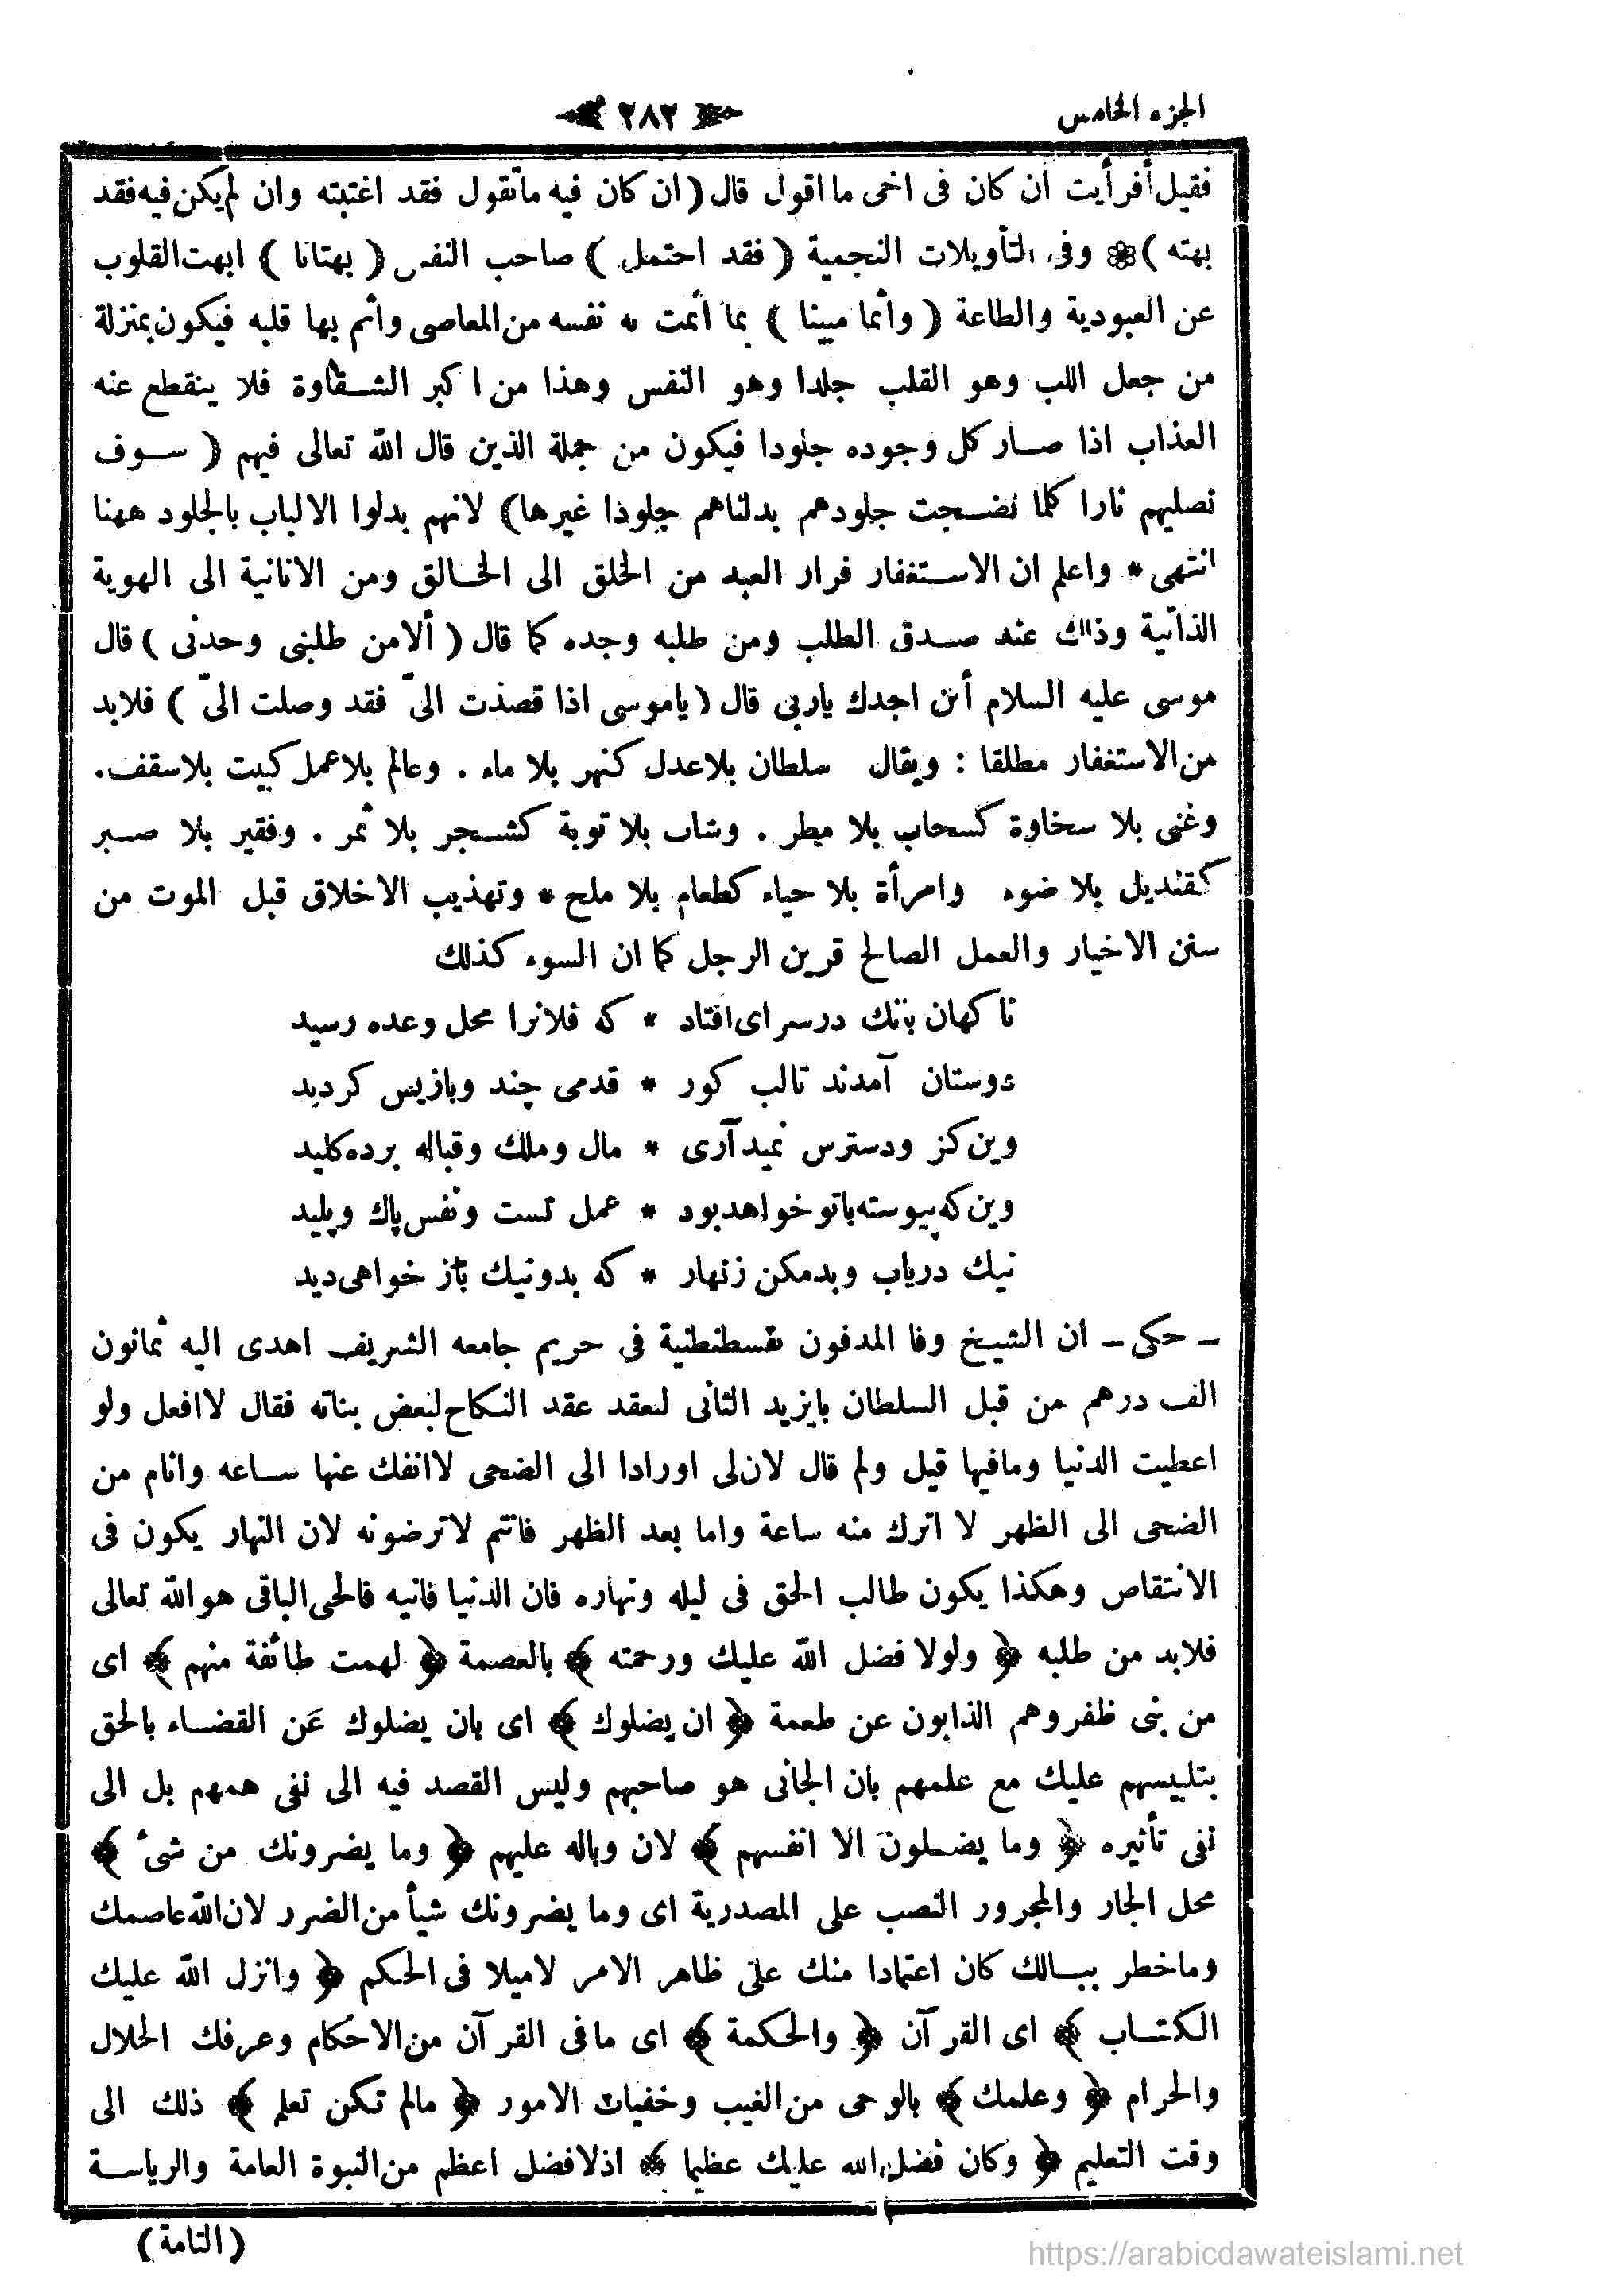 الجزء الخامس
٢٨٢
فقيل أفرأيت ان كان فى اخى ما اقول قال (ان كان فيه ماتقول فقد اغتبته وان لم يكن فيه فقد
بهته) وفى التأويلات النجمية (فقد احتمل) صاحب النفس (بهتانا) ابهت القلوب
عن العبودية والطاعة (وأثما مبينا) بما أثمت به نفسه من المعاصى وأثم بها قلبه فيكون بمنزلة
من جعل اللب وهو القلب جلدا وهو النفس وهذا من اكبر الشقاوة فلا ينقطع عنه
العذاب اذا صار كل وجوده جلودا فيكون من جملة الذين قال الله تعالى فيهم (سوف
نصليهم نارا كلما نضجت جلودهم بدلناهم جلودا غيرها) لانهم بدلوا الالباب بالجلود ههنا
انتهى * واعلم ان الاستغفار فرار العبد من الخلق الى الخالق ومن الانانية الى الهوية
الذاتية وذلك عند صدق الطلب ومن طلبه وجده كما قال (ألا من طلبنى وحدنى) قال
موسى عليه السلام أين اجدك ياربى قال (ياموسى اذا قصدت الىّ فقد وصلت الىّ) فلابد
من الاستغفار مطلقا : ويقال سلطان بلاعدل كنهر بلا ماء . وعالم بلاعمل كبيت بلاسقف .
وغنى بلا سخاوة كسحاب بلا مطر . وشاب بلا توبة كشجر بلا ثمر . وفقير بلا صبر
كقنديل بلا ضوء وامرأة بلا حياء كطعام بلا ملح * وتهذيب الاخلاق قبل الموت من
سنن الاخيار والعمل الصالح قرين الرجل كما ان السوء كذلك
ناكهان بانك درسراى افتاد * كه فلانرا محل وعده رسيد
دوستان آمدند تالب كور * قدمى چند وبازپس كرديد
وين كز ودسترس نميد آرى * مال وملك وقباله برده كليد
وين كه پيوسته باتو خواهد بود * عمل تست ونفس پاك وپليد
نيك درياب وبدمكن زنهار * كه بدونيك باز خواهى ديد
ـ حكى ـ ان الشيخ وفا المدفون بقسطنطنية فى حريم جامعه الشريف اهدى اليه ثمانون
الف درهم من قبل السلطان بايزيد الثانى لعقد عقد النكاح لبعض بناته فقال لاافعل ولو
اعطيت الدنيا ومافيها قيل ولم قال لان لى اورادا الى الضحى لاانفك عنها ساعه وانام من
الضحى الى الظهر لا اترك منه ساعة واما بعد الظهر فانتم لاترضونه لان النهار يكون فى
الانتقاص وهكذا يكون طالب الحق فى ليله ونهاره فان الدنيا فانيه فالحى الباقى هو الله تعالى
فلابد من طلبه ﴿ ولولا فضل الله عليك ورحمته ﴾ بالعصمة ﴿ لهمت طائفة منهم ﴾ اى
من بنى ظفر وهم الذابون عن طعمة ﴿ ان يضلوك ﴾ اى بان يضلوك عَن القضاء بالحق
بتلبيسهم عليك مع علمهم بان الجانى هو صاحبهم وليس القصد فيه الى نفى همهم بل الى
نفى تأثيره ﴿ وما يضلون الا انفسهم ﴾ لان وباله عليهم ﴿ وما يضرونك من شىء ﴾
محل الجار والمجرور النصب على المصدرية اى وما يضرونك شيأ من الضرر لان الله عاصمك
وماخطر ببالك كان اعتمادا منك على ظاهر الامر لاميلا فى الحكم ﴿ وانزل الله عليك
الكتاب ﴾ اى القرآن ﴿ والحكمة ﴾ اى مافى القرآن من الاحكام وعرفك الحلال
والحرام ﴿ وعلمك ﴾ بالوحى من الغيب وخفيات الامور ﴿ مالم تكن تعلم ﴾ ذلك الى
وقت التعليم ﴿ وكان فضل الله عليك عظيما ﴾ اذلافضل اعظم من النبوة العامة والرياسة
(التامة)
https://arabicdawateislami.net